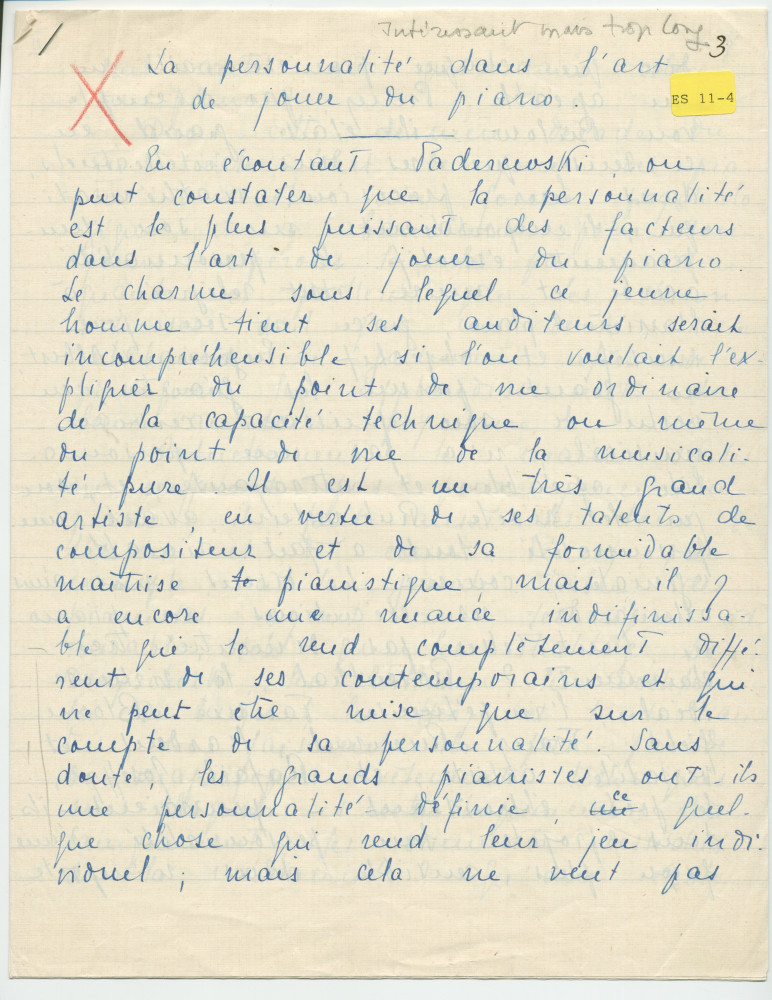 Intéressant mais trop long
1
3
La personnalité dans l'art
de jouer du piano
ES 11-4
En écoutant Paderewski, on
peut constater que la personnalité
est le plus puissant des facteurs
dans l'art de jouer du piano.
Le charme sous lequel ce jeune
homme tient ses auditeurs serait
incompréhensible si l'on voulait l'ex-
pliquer du point de vue ordinaire
de la capacité technique ou même
du point de vue de la musicali-
té pure. Il est un très grand
artiste, en vertu de ses talents de
compositeur et de sa formidable
maîtrise pianistique, mais il y
a encore une nuance indéfinissa-
ble qui le rend complètement diffé-
rent de ses contemporains et qui
ne peut être mise que sur le
compte de sa personnalité. Sans
doute, les grands pianistes ont-ils
une personnalité définie, ce quel-
que chose qui rend leur jeu indi-
viduel; mais cela ne veut pas